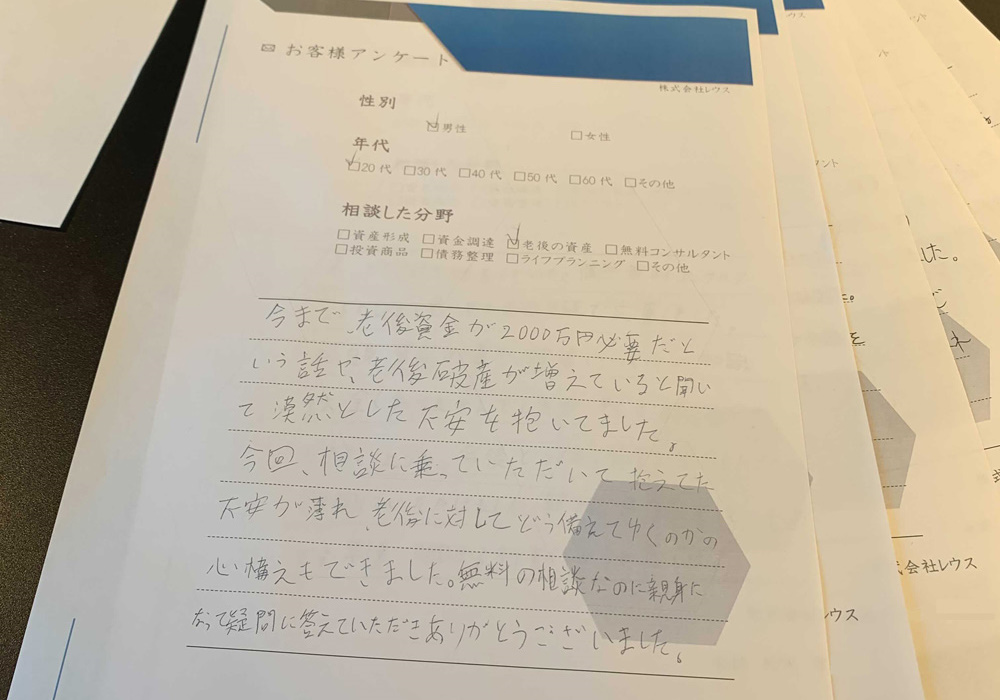 お客様アンケート
株式会社レウス
性別
☑男性 □女性
年代
☑20代 □30代 □40代 □50代 □60代 □その他
相談した分野
□資産形成 □資金調達 ☑老後の資産 □無料コンサルタント
□投資商品 □債務整理 □ライフプランニング □その他
今まで、老後資金が2000万円必要だと
いう話や、老後破産が増えていると聞い
て漠然とした不安を抱いてました。
今回、相談に乗っていただいて抱えてた
不安が薄れ、老後に対してどう備えてゆくのかの
心構えもできました。無料の相談なのに親身に
なって疑問に答えていただきありがとうございました。
レウス
ント
した。
式会社レウス
レウス